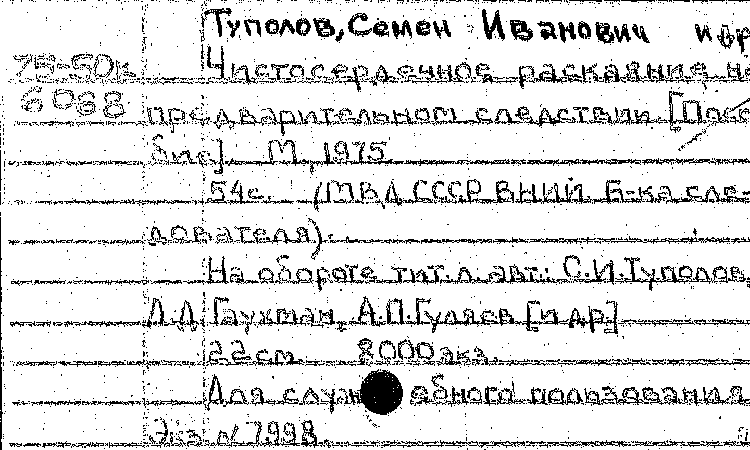 Туполов, Семен Иванович и др
75-50к Чистосердечное раскаяние на
6068 предварительном следствии [Посо
бие]. М., 1975.
54с. (МВД СССР ВНИИ Б-ка сле-
дователя).
На обороте тит.л. авт.: С.И.Туполов,
Л.Д.Гаухман, А.П.Гуляев [и др.]
22см. 8000экз.
Для пользования
Экз. № 7998.